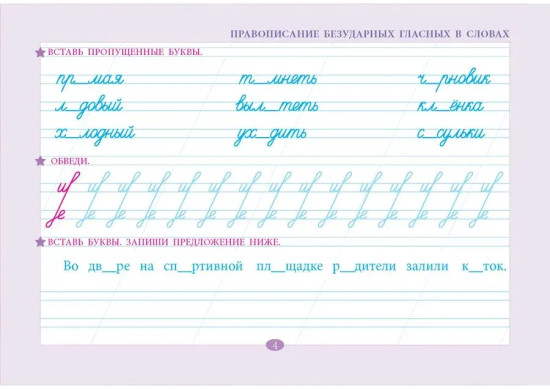 ПРАВОПИСАНИЕ БЕЗУДАРНЫХ ГЛАСНЫХ В СЛОВАХ
ВСТАВЬ ПРОПУЩЕННЫЕ БУКВЫ.
пр_мая т_мнеть ч_рновик
л_довый выл_теть кл_ёнка
х_лодный ух_дить с_сульки
ОБВЕДИ.
ще ще ще ще ще ще ще ще ще ще ще ще ще ще ще ще
ВСТАВЬ БУКВЫ. ЗАПИШИ ПРЕДЛОЖЕНИЕ НИЖЕ.
Во дв__ре на сп__ртивной пл__щадке р__дители залили к__ток.
4